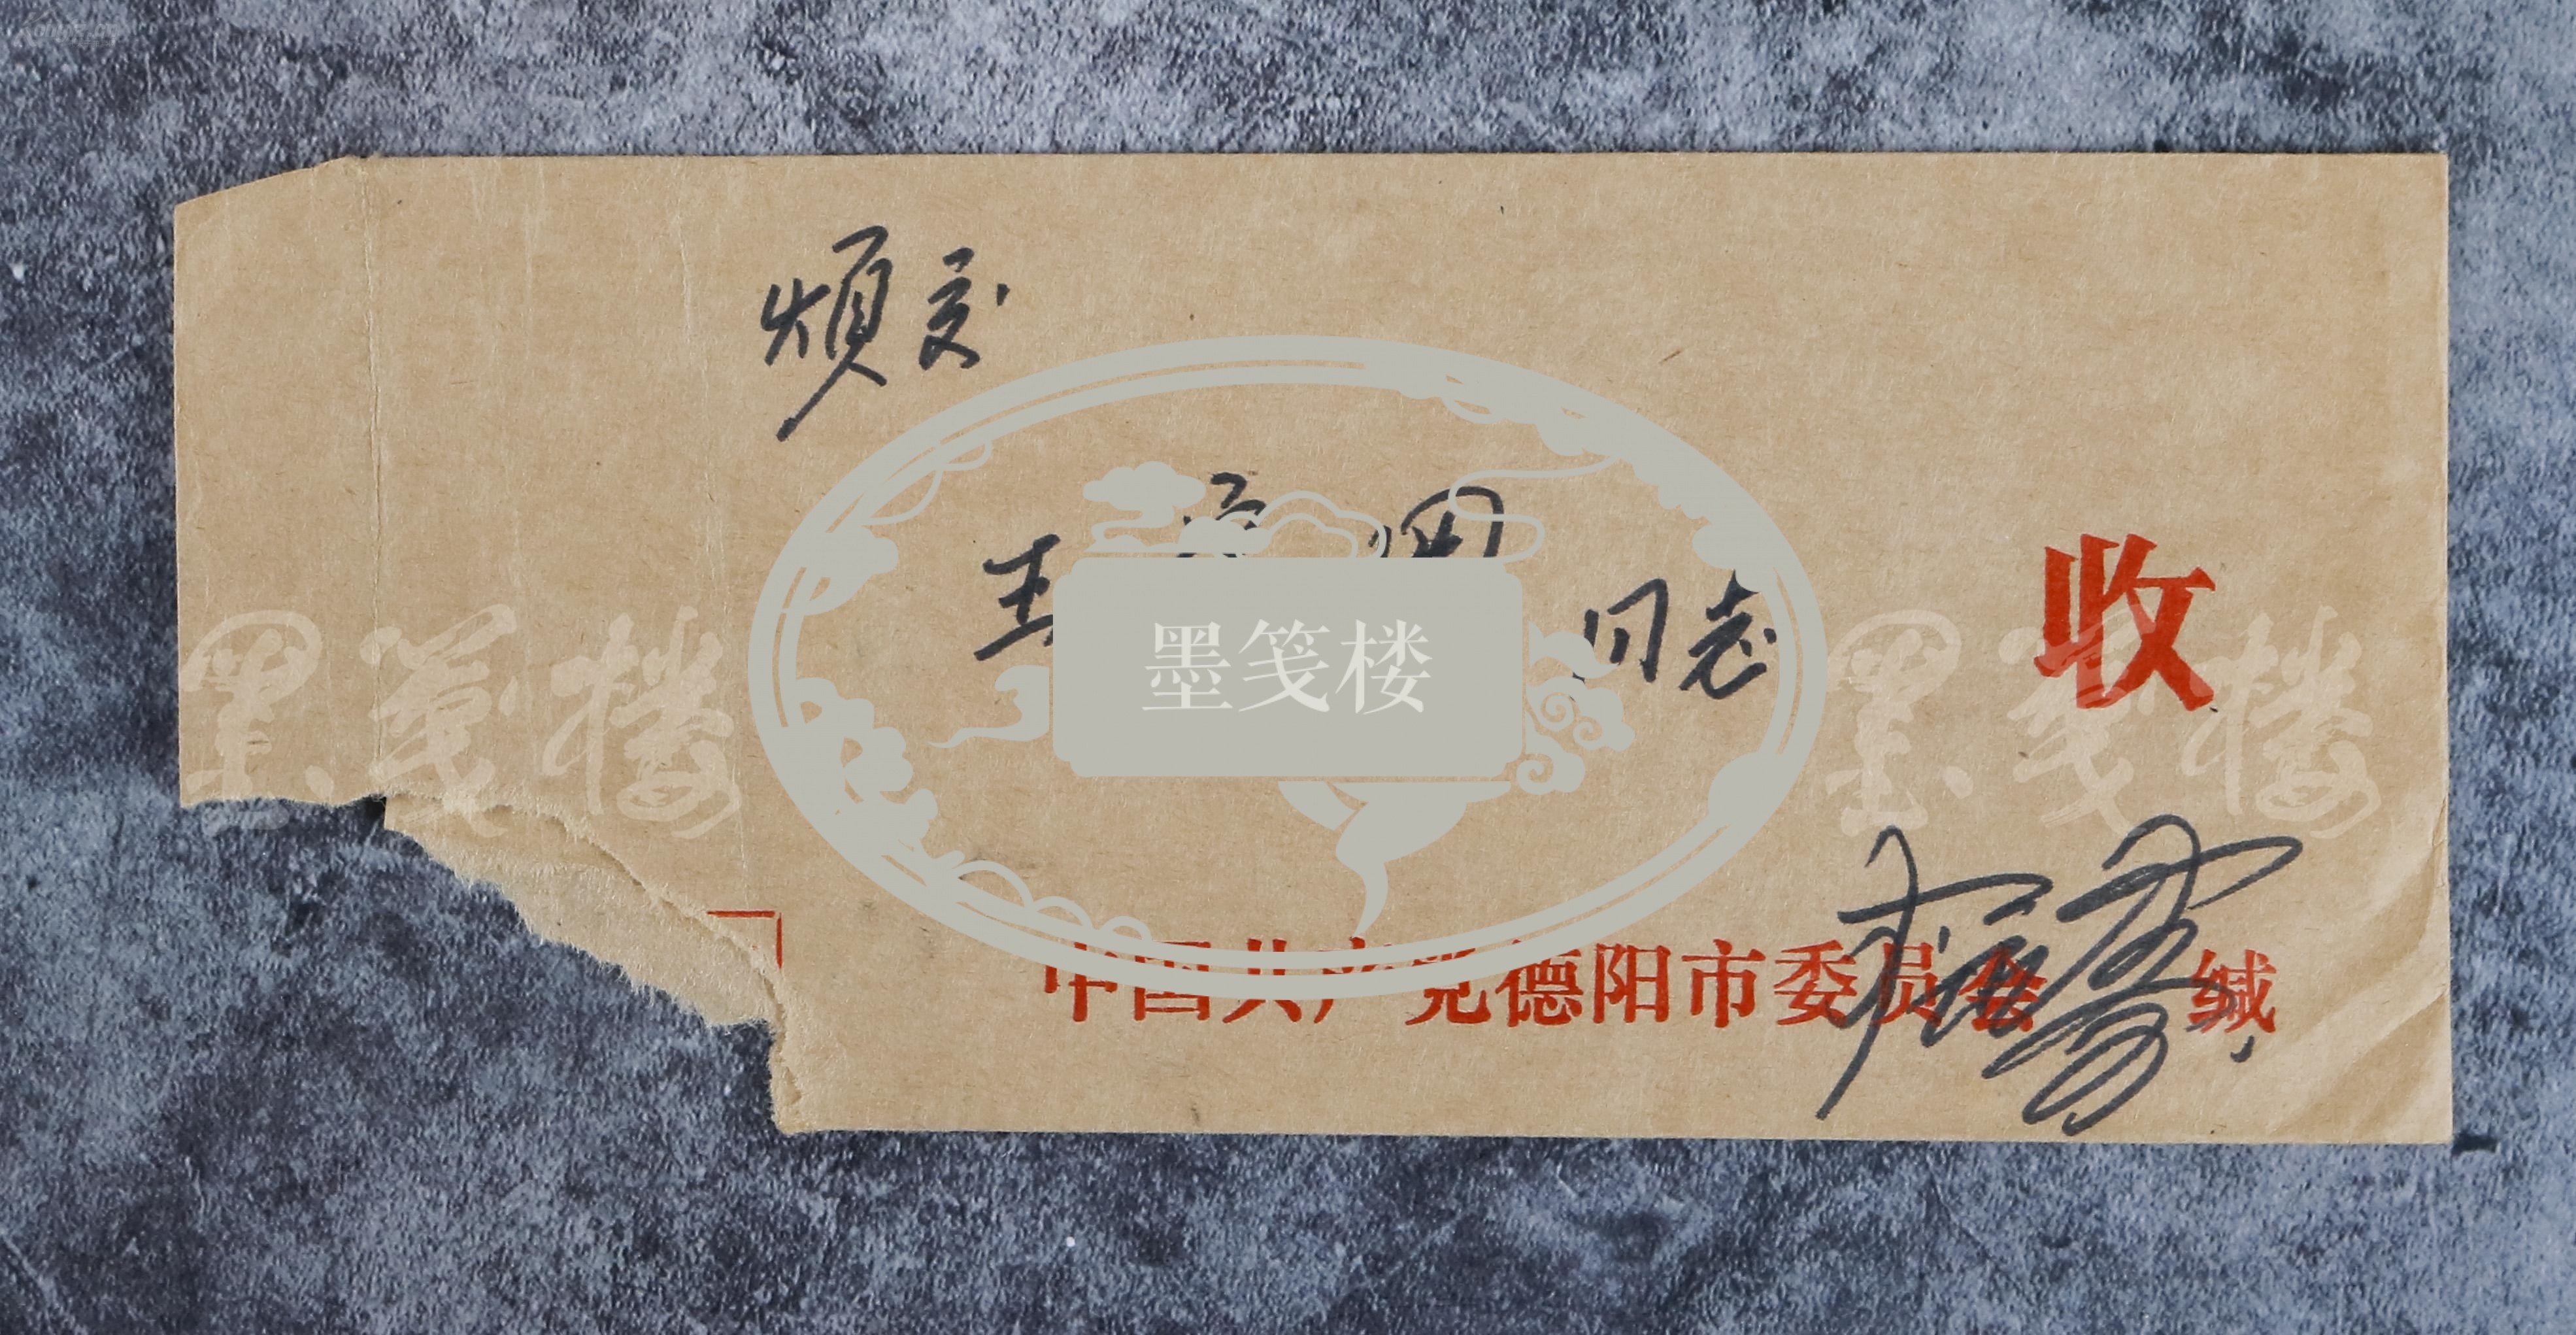 烦交
王 同志 收
墨笺楼
墨笺楼 墨笺楼
中国共产党德阳市委员会 缄